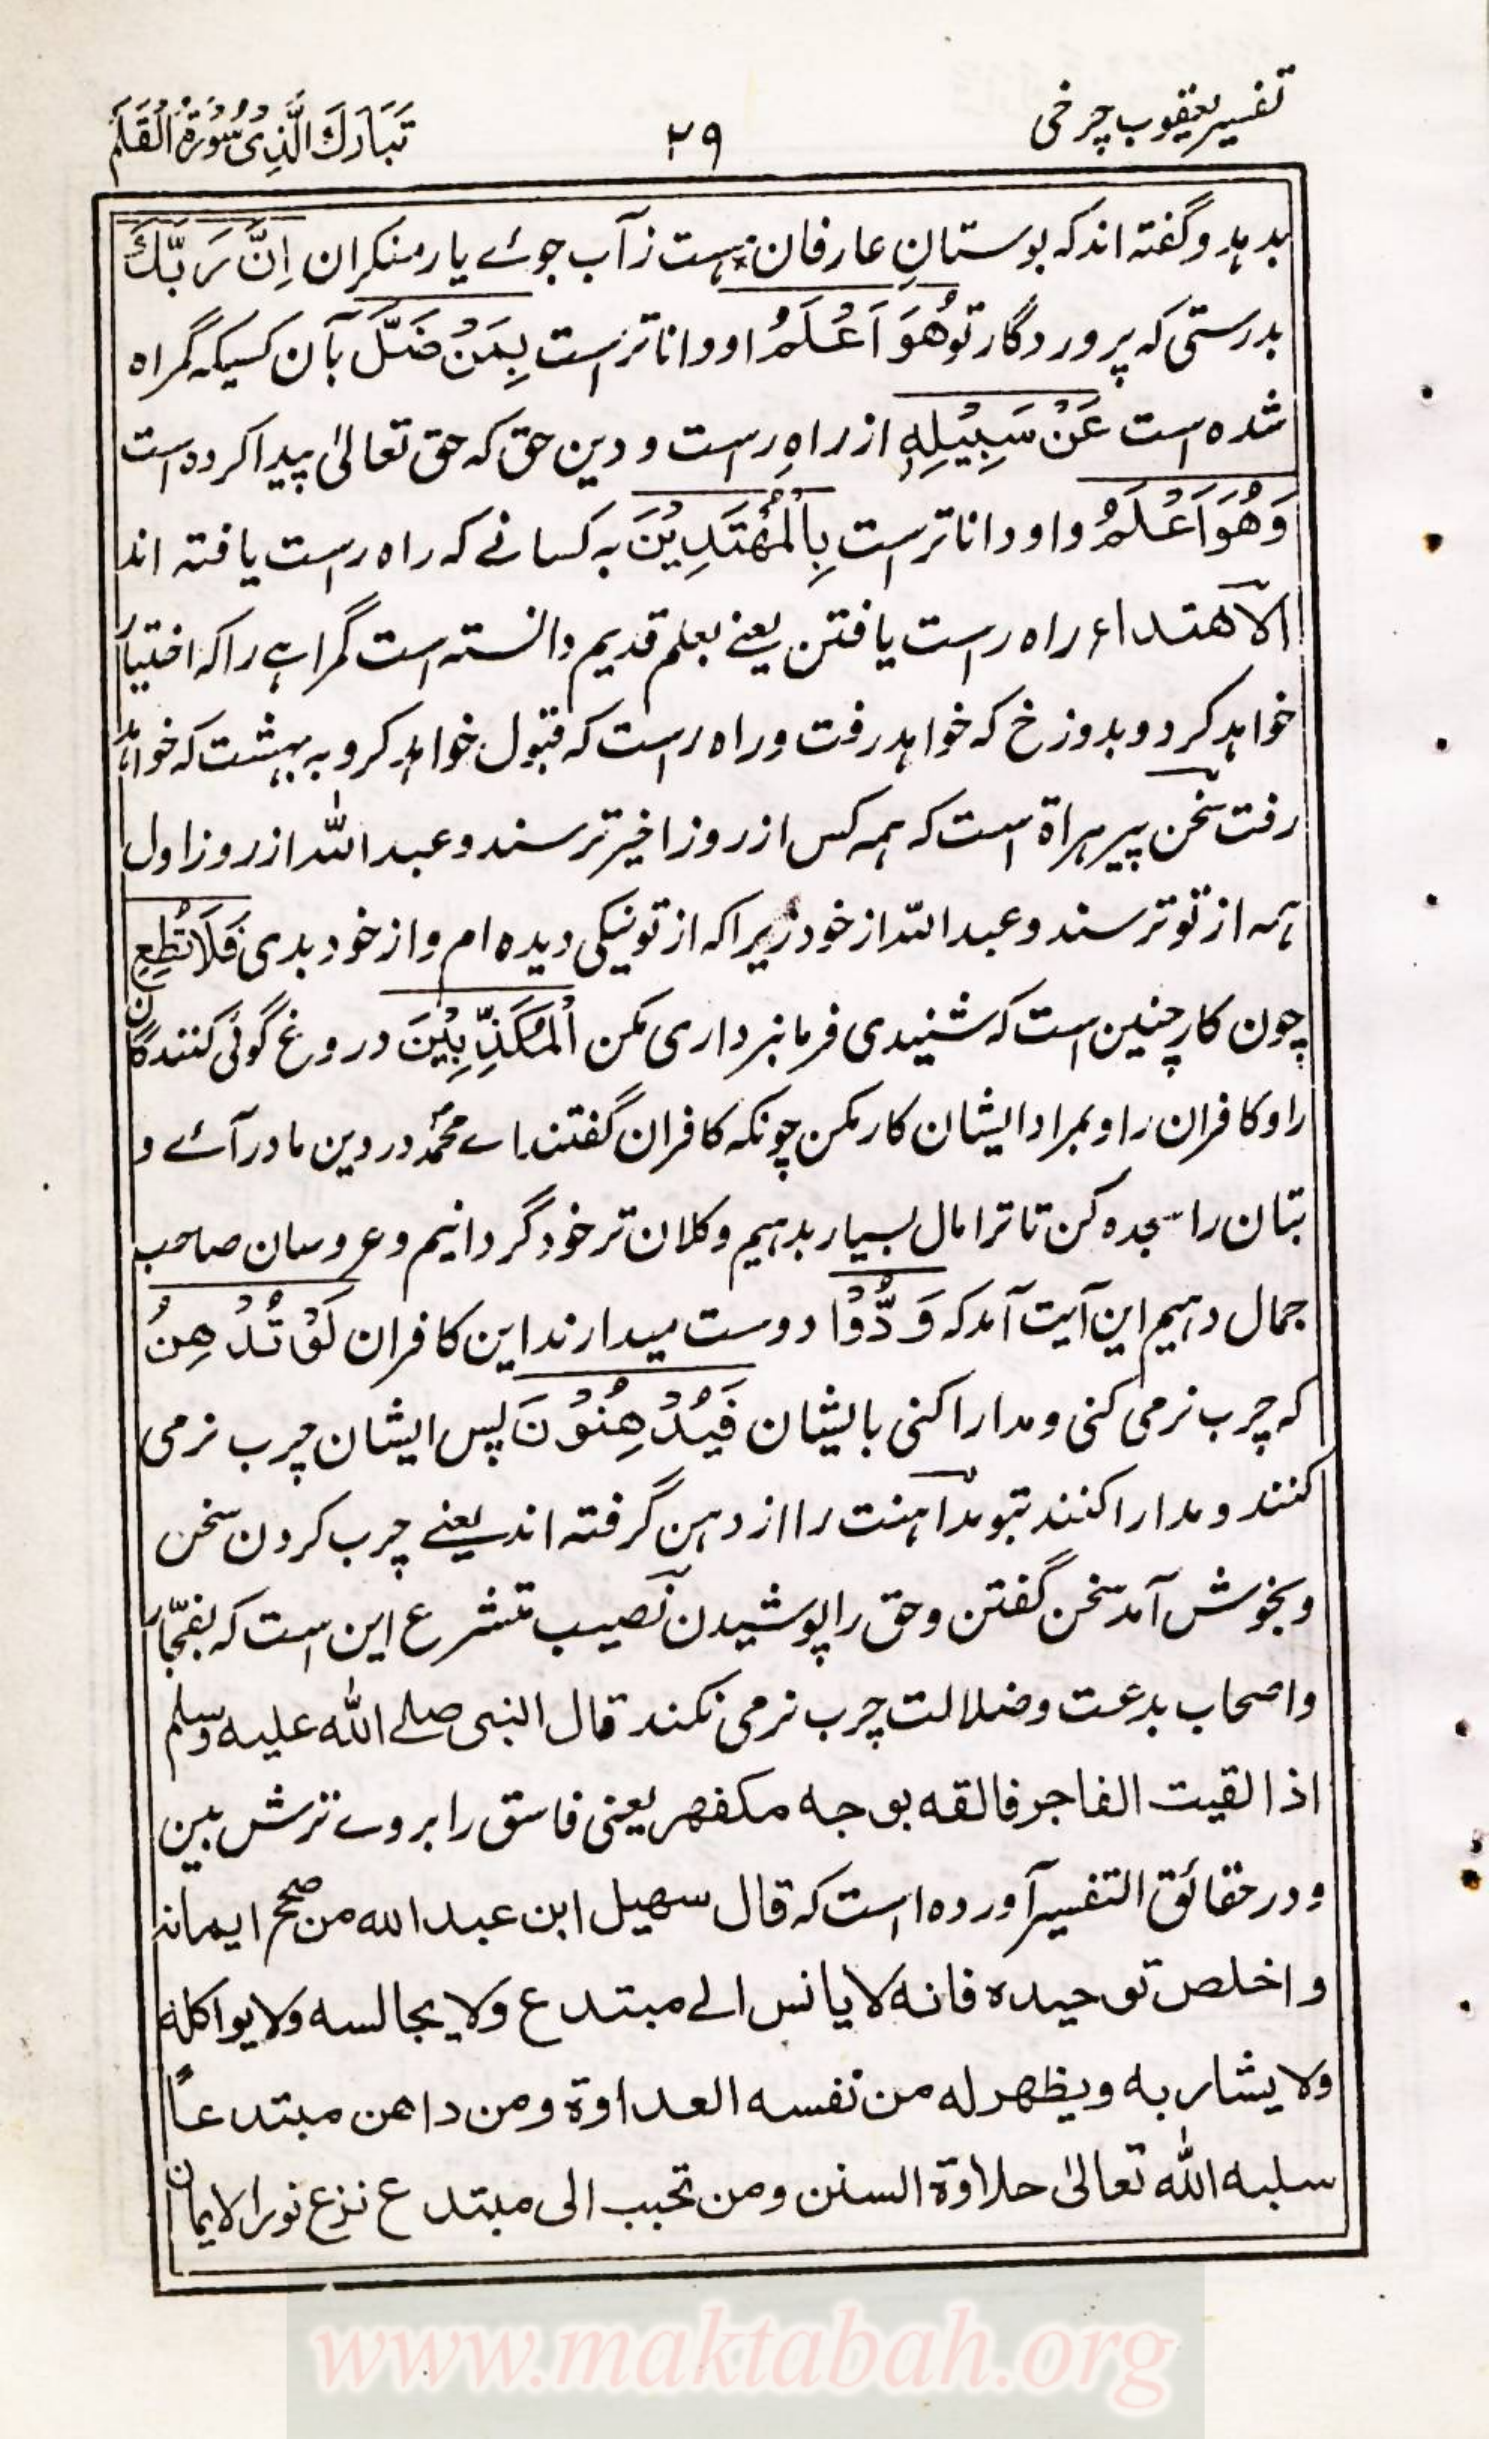 تفسیر یعقوب چرخی
۲۹
تَبَارَكَ الَّذِیْ سُوْرَةُ الْقَلَمِ
بدہد و گفتہ اند کہ بوستانِ عارفان * ہست ز آب جوئے یار منکران اِنَّ رَبَّكَ
بدرستی کہ پروردگار تو هُوَ اَعْلَمُ او داناتر است بِمَنْ ضَلَّ بآن کسیکہ گمراہ
شدہ است عَنْ سَبِیْلِهٖ از راہِ راست و دین حق کہ حق تعالیٰ پیدا کردہ است
وَهُوَ اَعْلَمُ و او داناتر است بِالْمُهْتَدِیْنَ بہ کسانے کہ راہ راست یافتہ اند
الاهتداء راہ راست یافتن یعنے بعلم قدیم دانستہ است گمراہے را کہ اختیار
خواہد کرد و بدوزخ کہ خواہد رفت و راہ راست کہ قبول خواہد کرو بہ بہشت کہ خواہد
رفت سخن پیر ہراة است کہ ہمہ کس از روز اخیر ترسند و عبد اللہ از روز اول
ہمہ از تو ترسند و عبد اللہ از خود زیرا کہ از تو نیکی دیدہ ام و از خود بدی فَلَا تُطِعِ
چون کار چنین است کہ شنیدی فرمانبرداری مکن الْمُكَذِّبِیْنَ دروغ گوئی کنندگان
را و کافران را و بمراد ایشان کار مکن چونکہ کافران گفتند اے محمدؐ در دین ما درآئے و
بتان را سجدہ کن تا ترا مال بسیار بدہیم و کلان تر خود گردانیم و عروسان صاحب
جمال دہیم این آیت آمد کہ وَدُّوْا دوست میدارند این کافران لَوْ تُدْهِنُ
کہ چرب نرمی کنی و مدارا کنی با ایشان فَیُدْهِنُوْنَ پس ایشان چرب نرمی
کنند و مدارا کنند بتو مداہنت را از دہن گرفتہ اند یعنے چرب کردن سخن
و بخوش آمد سخن گفتن و حق را پوشیدن نصیب متشرع این است کہ بفجّار
و اصحاب بدعت و ضلالت چرب نرمی نکند قال النبی صلے اللہ علیہ وسلم
اذا لقیت الفاجر فالقه بوجه مکفهر یعنی فاسق را بروے ترش بین
و در حقائق التفسیر آوردہ است کہ قال سهیل ابن عبد الله من صحح ایمانه
و اخلص توحیده فانه لا یانس الے مبتدع ولا یجالسه ولا یواکله
ولا یشاربه ویظهر له من نفسه العداوة ومن داهن مبتدعاً
سلبه الله تعالیٰ حلاوة السنن ومن تحبب الی مبتدع نزع نور الایمان
www.maktabah.org